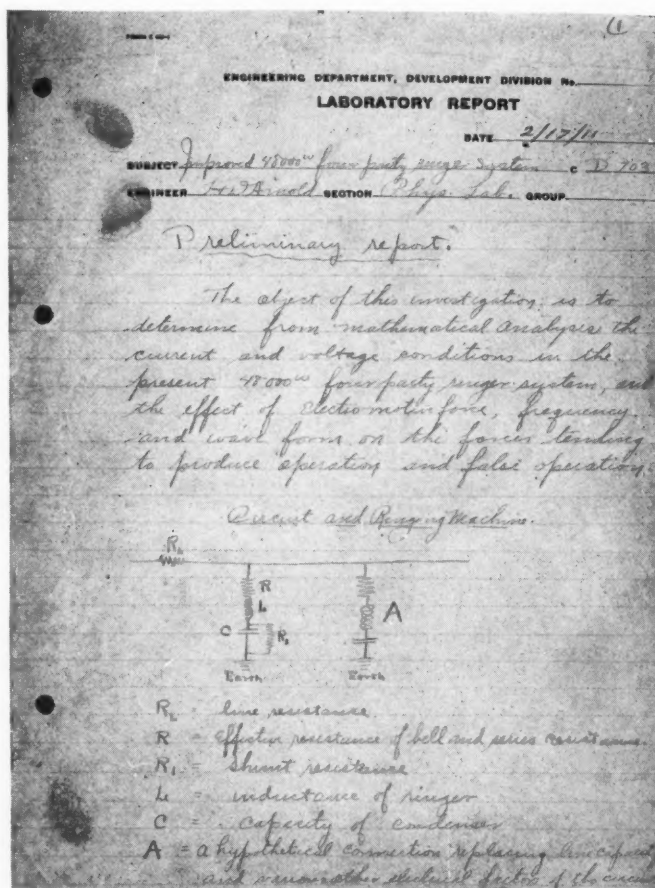 (1
ENGINEERING DEPARTMENT, DEVELOPMENT DIVISION No.
LABORATORY REPORT
DATE 2/17/11
SUBJECT Improved 48000ω four party ringer system C D 703
ENGINEER H.D. Arnold SECTION Phys. Lab. GROUP
Preliminary report.
The object of this investigation is to
determine from mathematical analysis the
current and voltage conditions in the
present 48000ω four party ringer system, and
the effect of Electromotive force, frequency
and wave form on the forces tending
to produce operation and false operation.
Circuit and Ringing Machine.
RL
R
L
C
R1
A
Earth
Earth
RL = line resistance
R = Effective resistance of bell and series resistance.
R1 = Shunt resistance
L = inductance of ringer
C = capacity of condenser
A = a hypothetical connection replacing line capacity
and various other electrical factors of the circuit